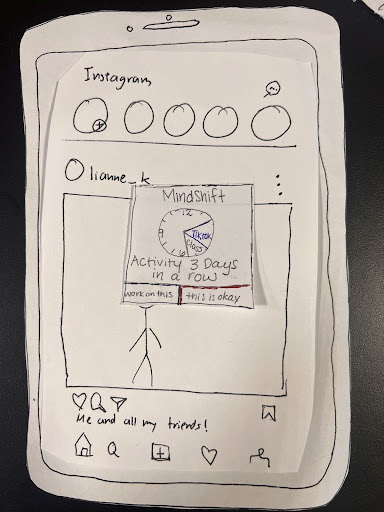 Instagram
lianne_k
MindShift
12
9
TikTok
Class
6
Activity 3 Days
in a row
work on this
this is okay
Me and all my friends!